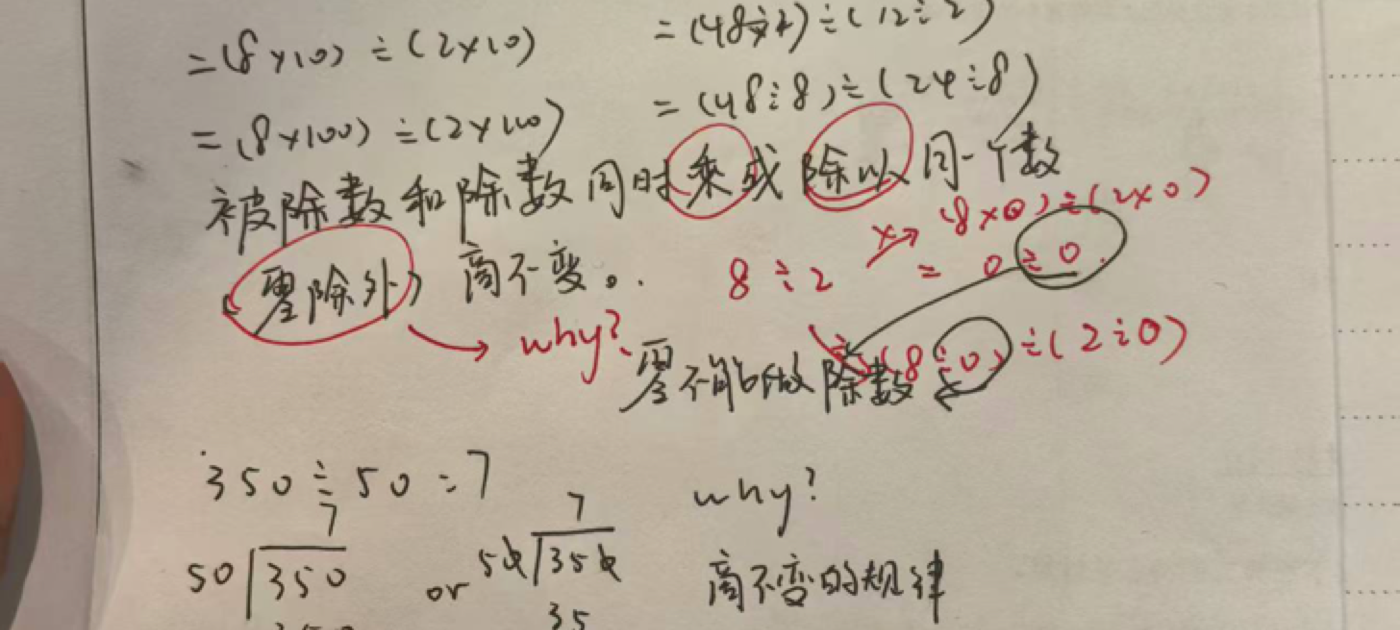 =(8×10)÷(2×10)
=(48÷2)÷(12÷2)
=(8×100)÷(2×100)
=(48÷8)÷(24÷8)
被除数和除数同时乘或除以同一个数
(零除外) 商不变。
why?
8÷2 × (8×0)÷(2×0)
= 0÷0
(8÷0)÷(2÷0)
零不能做除数
350÷50=7
why?
7
50 350
or
7
50 350
35
商不变的规律